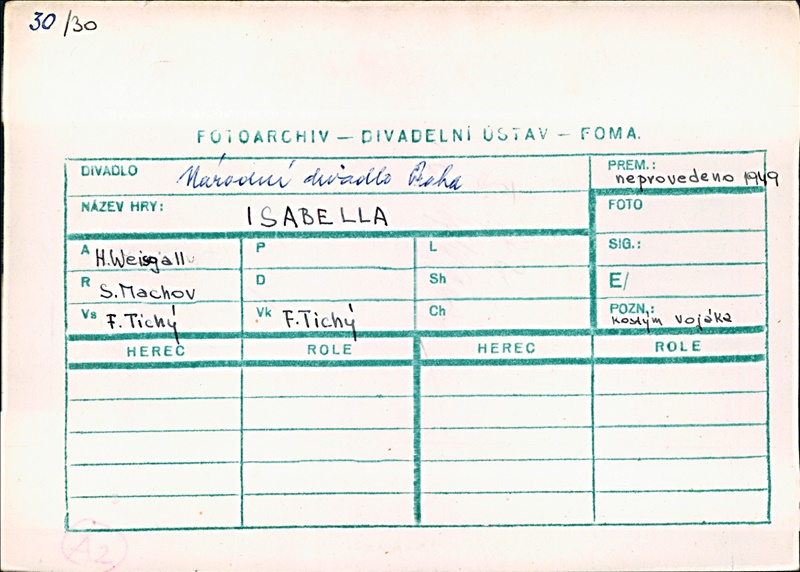 30/30
FOTOARCHIV — DIVADELNÍ ÚSTAV — FOMA.
DIVADLO Národní divadlo Praha
PREM.: neprovedeno 1949
NÁZEV HRY: ISABELLA
FOTO
A H. Weisgall P L SIG.:
R S. Machov D Sh E/
Vs F. Tichý Vk F. Tichý Ch POZN.: kostým vojáka
HEREC ROLE HEREC ROLE
A2